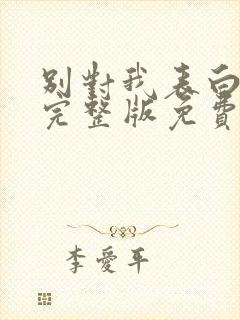 別對我表白
完整版免費
李愛平